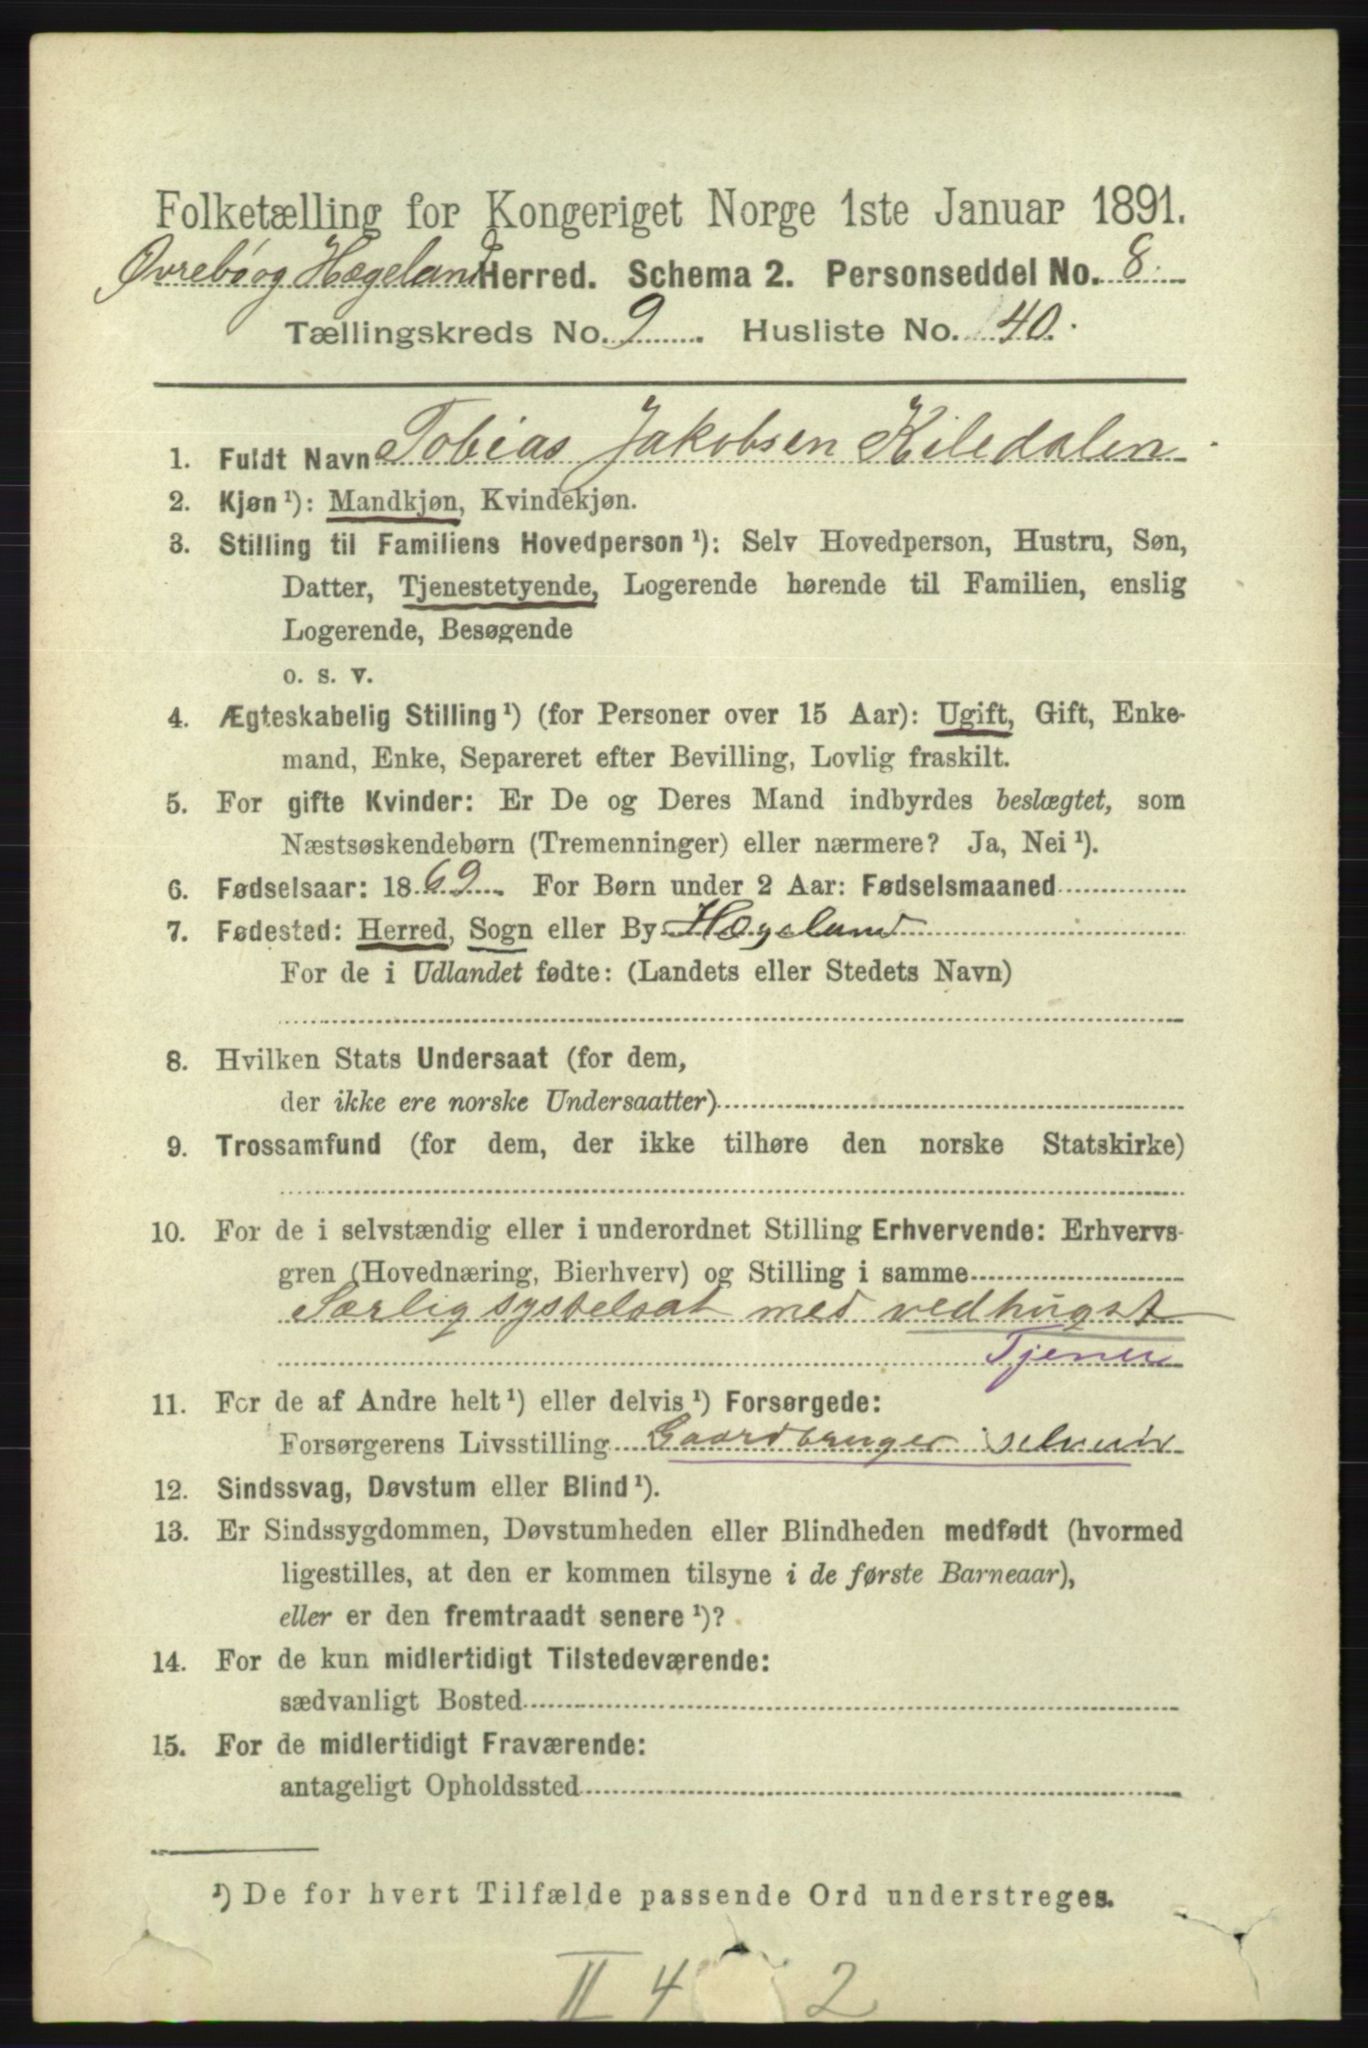 Folketælling for Kongeriget Norge 1ste Januar 1891.
Øvrebø og Hægeland Herred. Schema 2. Personseddel No. 8.
Tællingskreds No. 9. Husliste No. 40.
1. Fuldt Navn Tobias Jakobsen Kiledalen
2. Kjøn ¹): Mandkjøn, Kvindekjøn.
3. Stilling til Familiens Hovedperson ¹): Selv Hovedperson, Hustru, Søn,
Datter, Tjenestetyende, Logerende hørende til Familien, enslig
Logerende, Besøgende
o. s. v.
4. Ægteskabelig Stilling ¹) (for Personer over 15 Aar): Ugift, Gift, Enke-
mand, Enke, Separeret efter Bevilling, Lovlig fraskilt.
5. For gifte Kvinder: Er De og Deres Mand indbyrdes beslægtet, som
Næstsøskendebørn (Tremenninger) eller nærmere? Ja, Nei ¹).
6. Fødselsaar: 1869. For Børn under 2 Aar: Fødselsmaaned
7. Fødested: Herred, Sogn eller By Hægeland
For de i Udlandet fødte: (Landets eller Stedets Navn)
8. Hvilken Stats Undersaat (for dem,
der ikke ere norske Undersaatter)
9. Trossamfund (for dem, der ikke tilhøre den norske Statskirke)
10. For de i selvstændig eller i underordnet Stilling Erhvervende: Erhvervs-
gren (Hovednæring, Bierhverv) og Stilling i samme
Særlig sysselsat med vedhugst
Tjener
11. For de af Andre helt ¹) eller delvis ¹) Forsørgede:
Forsørgerens Livsstilling Gaardbruger selveier
12. Sindssvag, Døvstum eller Blind ¹).
13. Er Sindssygdommen, Døvstumheden eller Blindheden medfødt (hvormed
ligestilles, at den er kommen tilsyne i de første Barneaar),
eller er den fremtraadt senere ¹)?
14. For de kun midlertidigt Tilstedeværende:
sædvanligt Bosted
15. For de midlertidigt Fraværende:
antageligt Opholdssted
¹) De for hvert Tilfælde passende Ord understreges.
II 4 2